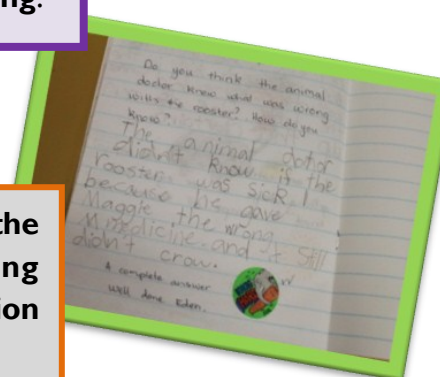 ng.
the
ng
ion
Do you think the animal
doctor knew what was wrong
with the rooster? How do you
know?
The animal dotor
didn't know if the
rooster was sick
because he gave
Maggie the wrong
medicine and it still
didn't crow.
A complete answer
Well done Eden.